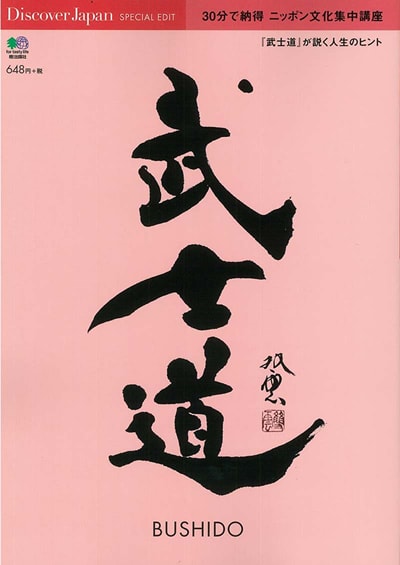 Discover Japan SPECIAL EDIT
30分で納得 ニッポン文化集中講座
『武士道』が説く人生のヒント
for tasty life
枻出版社
648円+税
武士道
BUSHIDO